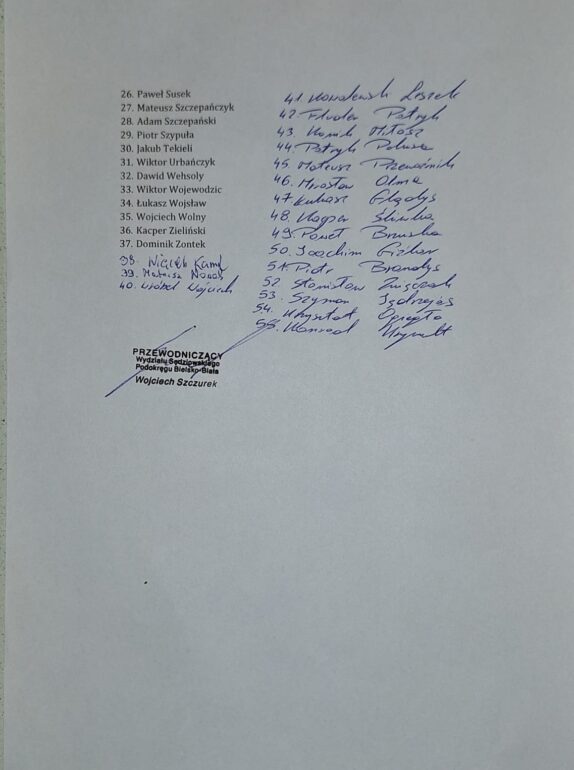 26. Paweł Susek
27. Mateusz Szczepańczyk
28. Adam Szczepański
29. Piotr Szypuła
30. Jakub Tekieli
31. Wiktor Urbańczyk
32. Dawid Wehsoly
33. Wiktor Wojewodzic
34. Łukasz Wojsław
35. Wojciech Wolny
36. Kacper Zieliński
37. Dominik Zontek
38. Więcek Kamil
39. Mateusz Nowak
40. Wróbel Wojciech
41. Kowalewski Leszek
42 Patryk
43. Konik Miłosz
44 Patryk
45. Mateusz Przewoźnik
46. Mirosław Olma
47 Łukasz Gładys
48. Kacper Śliwka
49. Paweł
50. Joachim
51. Piotr Brandys
52. Stanisław
53. Szymon
54. Krzysztof
55. Konrad
PRZEWODNICZĄCY
Wydziału Sędziowskiego
Podokręgu Bielsko-Biała
Wojciech Szczurek